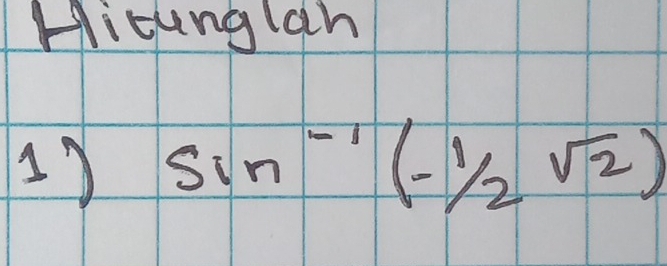 Hitunglah
1) Sin⁻¹ (-1/2 √2)